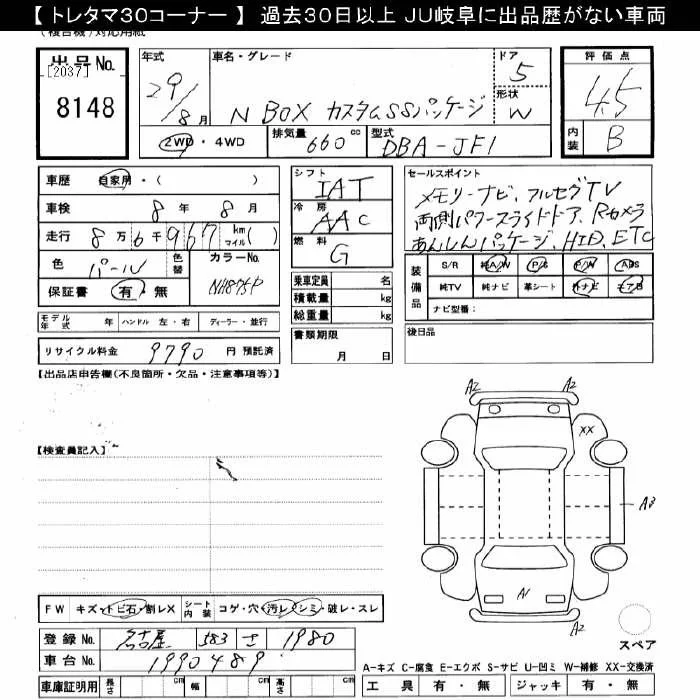 【 トレタマ30コーナー 】 過去30日以上 JU岐阜に出品歴がない車両
出品No.
[2037]
8148
年式 車名・グレード ドア
29/8月 N BOX カスタムSSパッケージ 5
形状 W
2WD・4WD 排気量 660 cc 型式 DBA-JF1
評価点
4.5
内装 B
車歴 自家用・( )
車検 8 年 8 月
走行 8万6千967 km マイル( )
色 パール 色替 カラーNo. NH875P
保証書 有・無
シフト IAT
冷房 AAC
燃料 G
乗車定員 名
積載量 kg
総重量 kg
セールスポイント
メモリーナビ、フルセグTV
両側パワースライドドア、Rカメラ
あんしんパッケージ、HID、ETC
装備品 S/R 純A/W P/S P/W ABS
純TV 純ナビ 革シート 外ナビ エアB
ナビ型番:
モデル年式 年 ハンドル 左・右 ディーラー・並行
書類期限 月 日
後日品
リサイクル料金 9790 円 預託済
【出品店申告欄(不良箇所・欠品・注意事項等)】
A2 A2
XX
【検査員記入】
A3
A1
A2
スペア
FW キズ・トビ石・割レX シート内装 コゲ・穴・汚レ・シミ・破レ・スレ
登録No. 名古屋 583 さ 1980
車台No. 1990489
A-キズ C-腐食 E-エクボ S-サビ U-凹ミ W-補修 XX-交換済
車庫証明用 長さ cm 幅 cm 高さ cm 工具 有・無 ジャッキ 有・無